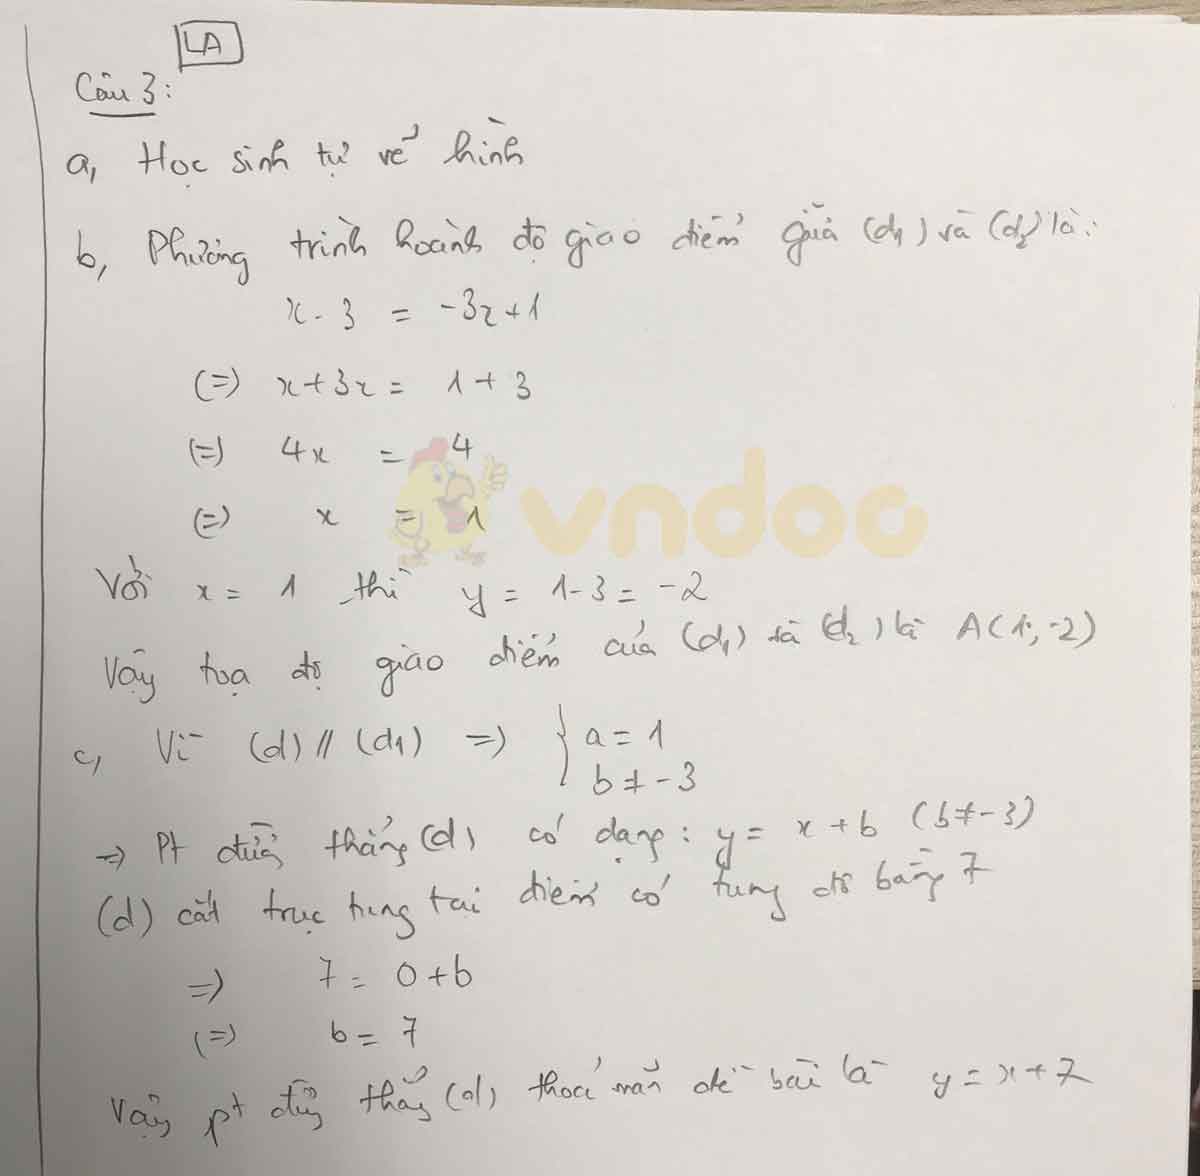 LA
Câu 3:
a, Học sinh tự vẽ hình
b, Phương trình hoành độ giao điểm giữa (d1) và (d2) là:
x - 3 = -3x+1
(=) x+3x = 1+3
(=) 4x = 4
(=) x = 1
vndoc
Với x = 1 thì y = 1-3 = -2
Vậy toạ độ giao điểm của (d1) và (d2) là A(1;-2)
c, Vì (d) // (d1) => { a = 1
b ≠ -3
=> Pt đường thẳng (d) có dạng: y = x+b (b≠-3)
(d) cắt trục tung tại điểm có tung độ bằng 7
=> 7 = 0+b
(=) b = 7
Vậy pt đường thẳng (d) thoả mãn đề bài là y = x+7